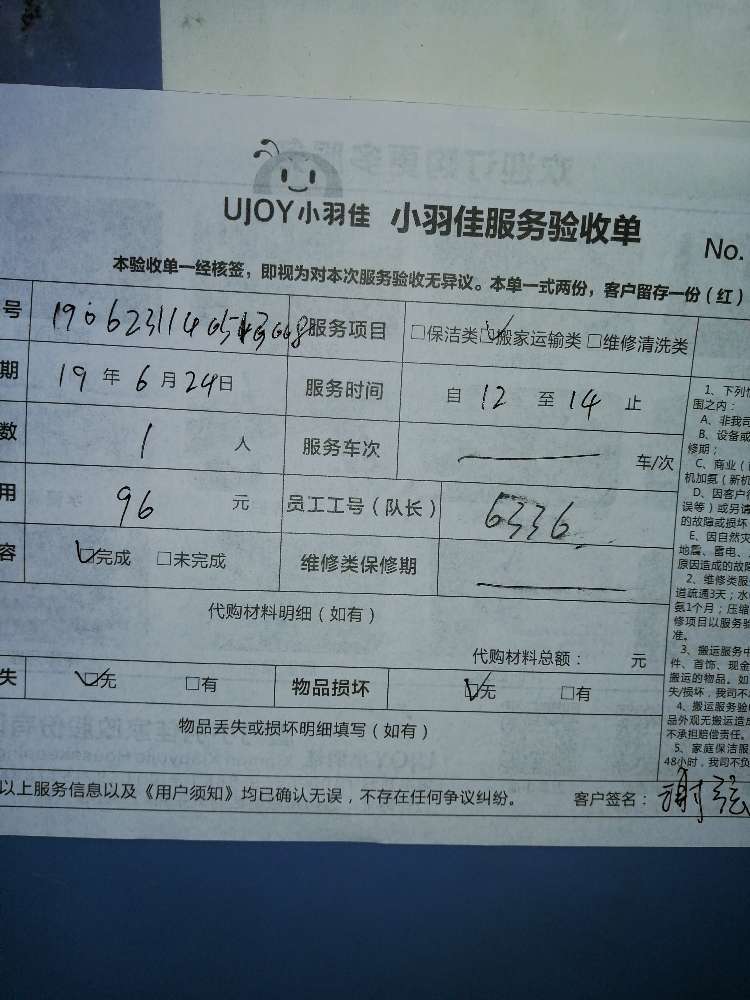 UJOY小羽佳 小羽佳服务验收单
No.
本验收单一经核签，即视为对本次服务验收无异议。本单一式两份，客户留存一份（红）
号 服务项目 □保洁类☑搬家运输类□维修清洗类
期 19年6月24日 服务时间 自 12 至 14 止
数 1 人 服务车次 车/次
用 96 元 员工工号（队长） 6336
容 ☑完成 □未完成 维修类保修期
代购材料明细（如有）
代购材料总额： 元
失 ☑无 □有 物品损坏 ☑无 □有
物品丢失或损坏明细填写（如有）
以上服务信息以及《用户须知》均已确认无误，不存在任何争议纠纷。 客户签名：谢弦
1、下列
围之内：
A、非我司
B、设备或
修期；
C、商业（
机加氨（新机
D、因客户
误等）或另请
的故障或损坏
E、因自然灾
地震、雷电、
原因造成的故障
2、维修类服
道疏通3天；水
氨1个月；压缩
修项目以服务验
准。
3、搬运服务中
件、首饰、现金
搬运的物品。如
失/损坏，我司不
4、搬运服务验
品外观无搬运造成
不承担赔偿责任。
5、家庭保洁服
48小时，我司不负